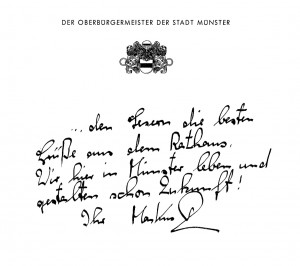 DER OBERBÜRGERMEISTER DER STADT MÜNSTER
... den Lesern die besten
Grüße aus dem Rathaus.
Wir hier in Münster leben und
gestalten schon Zukunft!
Ihr Markus